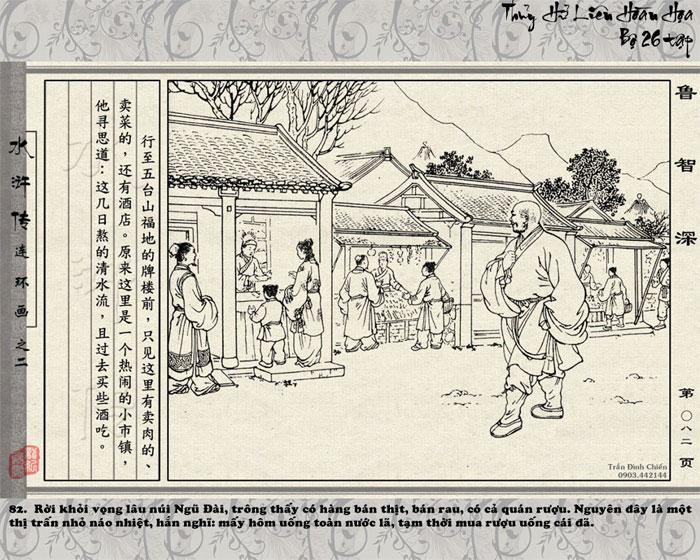 Thủy Hử Liên Hoàn Họa
Bộ 26 tập
鲁智深
第〇八二页
行至五台山福地的牌楼前，只见这里有卖肉的、
卖菜的，还有酒店。原来这里是一个热闹的小市镇，
他寻思道：这几日熬的清水流，且过去买些酒吃。
水浒传连环画之二
Trần Đình Chiến
0903.442144
82. Rời khỏi vọng lâu núi Ngũ Đài, trông thấy có hàng bán thịt, bán rau, có cả quán rượu. Nguyên đây là một
thị trấn nhỏ náo nhiệt, hắn nghĩ: mấy hôm uống toàn nước lã, tạm thời mua rượu uống cái đã.